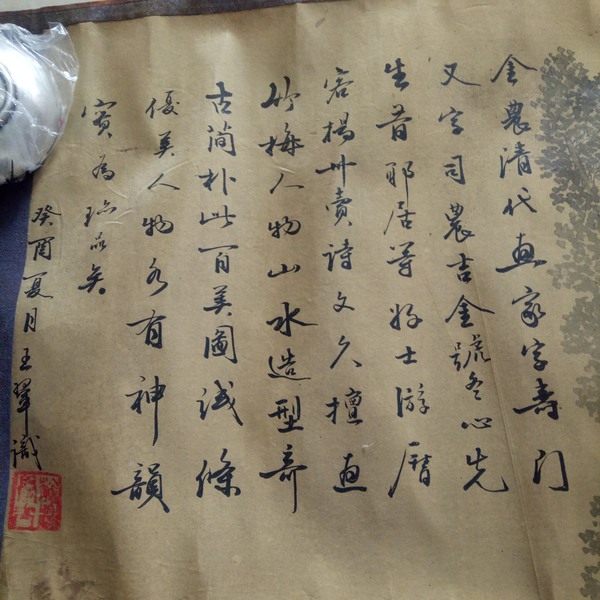 金農清代画家字寿门
又字司農吉金號冬心先
生昔耶居等好士游曆
客揚卅賣詩文久擅画
竹梅人物山水造型奇
古简朴此百美圖诚條
優美人物各有神韻
實為珍品矣
癸酉夏月王翠識